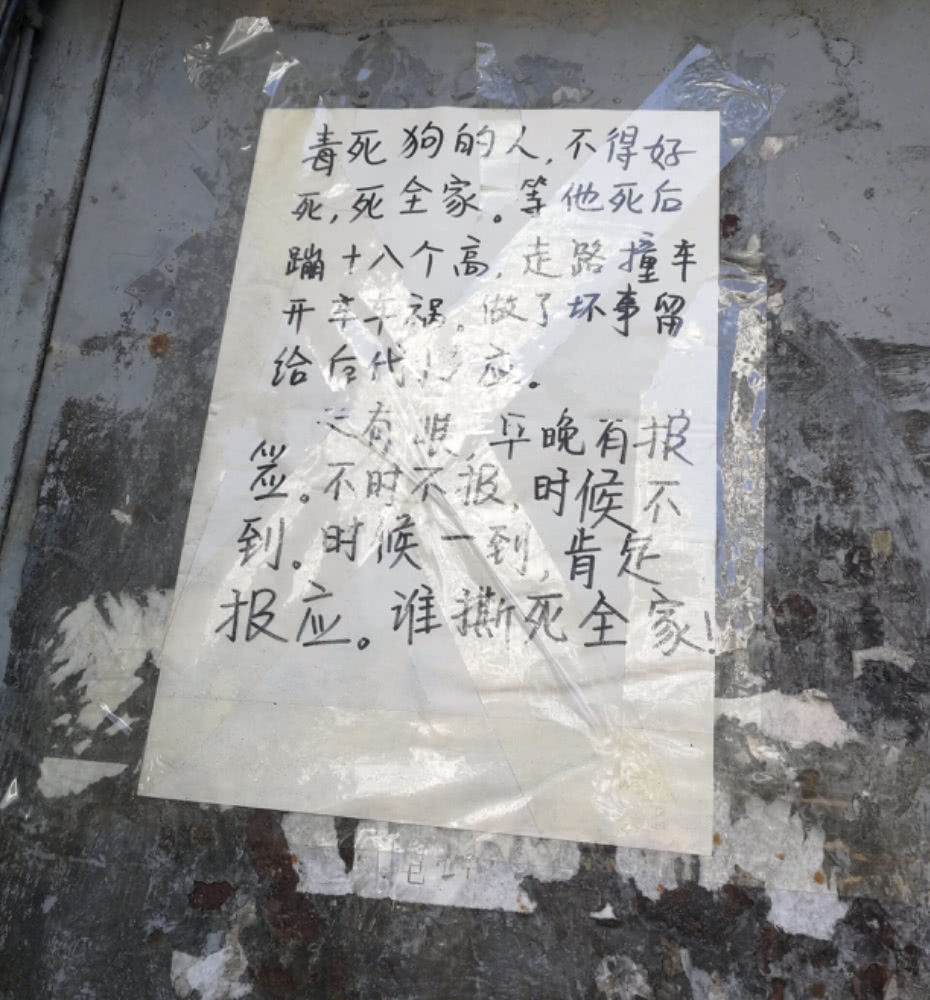 毒死狗的人,不得好
死,死全家。等他死后
蹦十八个高,走路撞车
开车车祸。做了坏事留
给后代报应。
有 眼,早晚有报
应。不时不报,时候不
到。时候一到,肯定
报应。谁撕死全家!